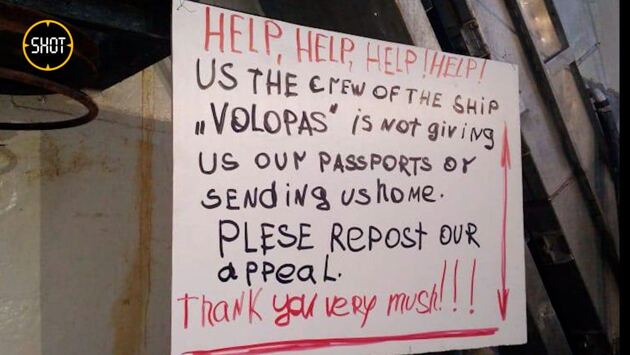 SHOT
HELP, HELP, HELP! HELP!
US THE CREW OF THE SHIP
„VOLOPAS" is not giving
US OUR PASSPORTS OR
SENDING US HOME.
PLESE REPOST OUR
APPEAL.
THANK YOU VERY MUSH!!!